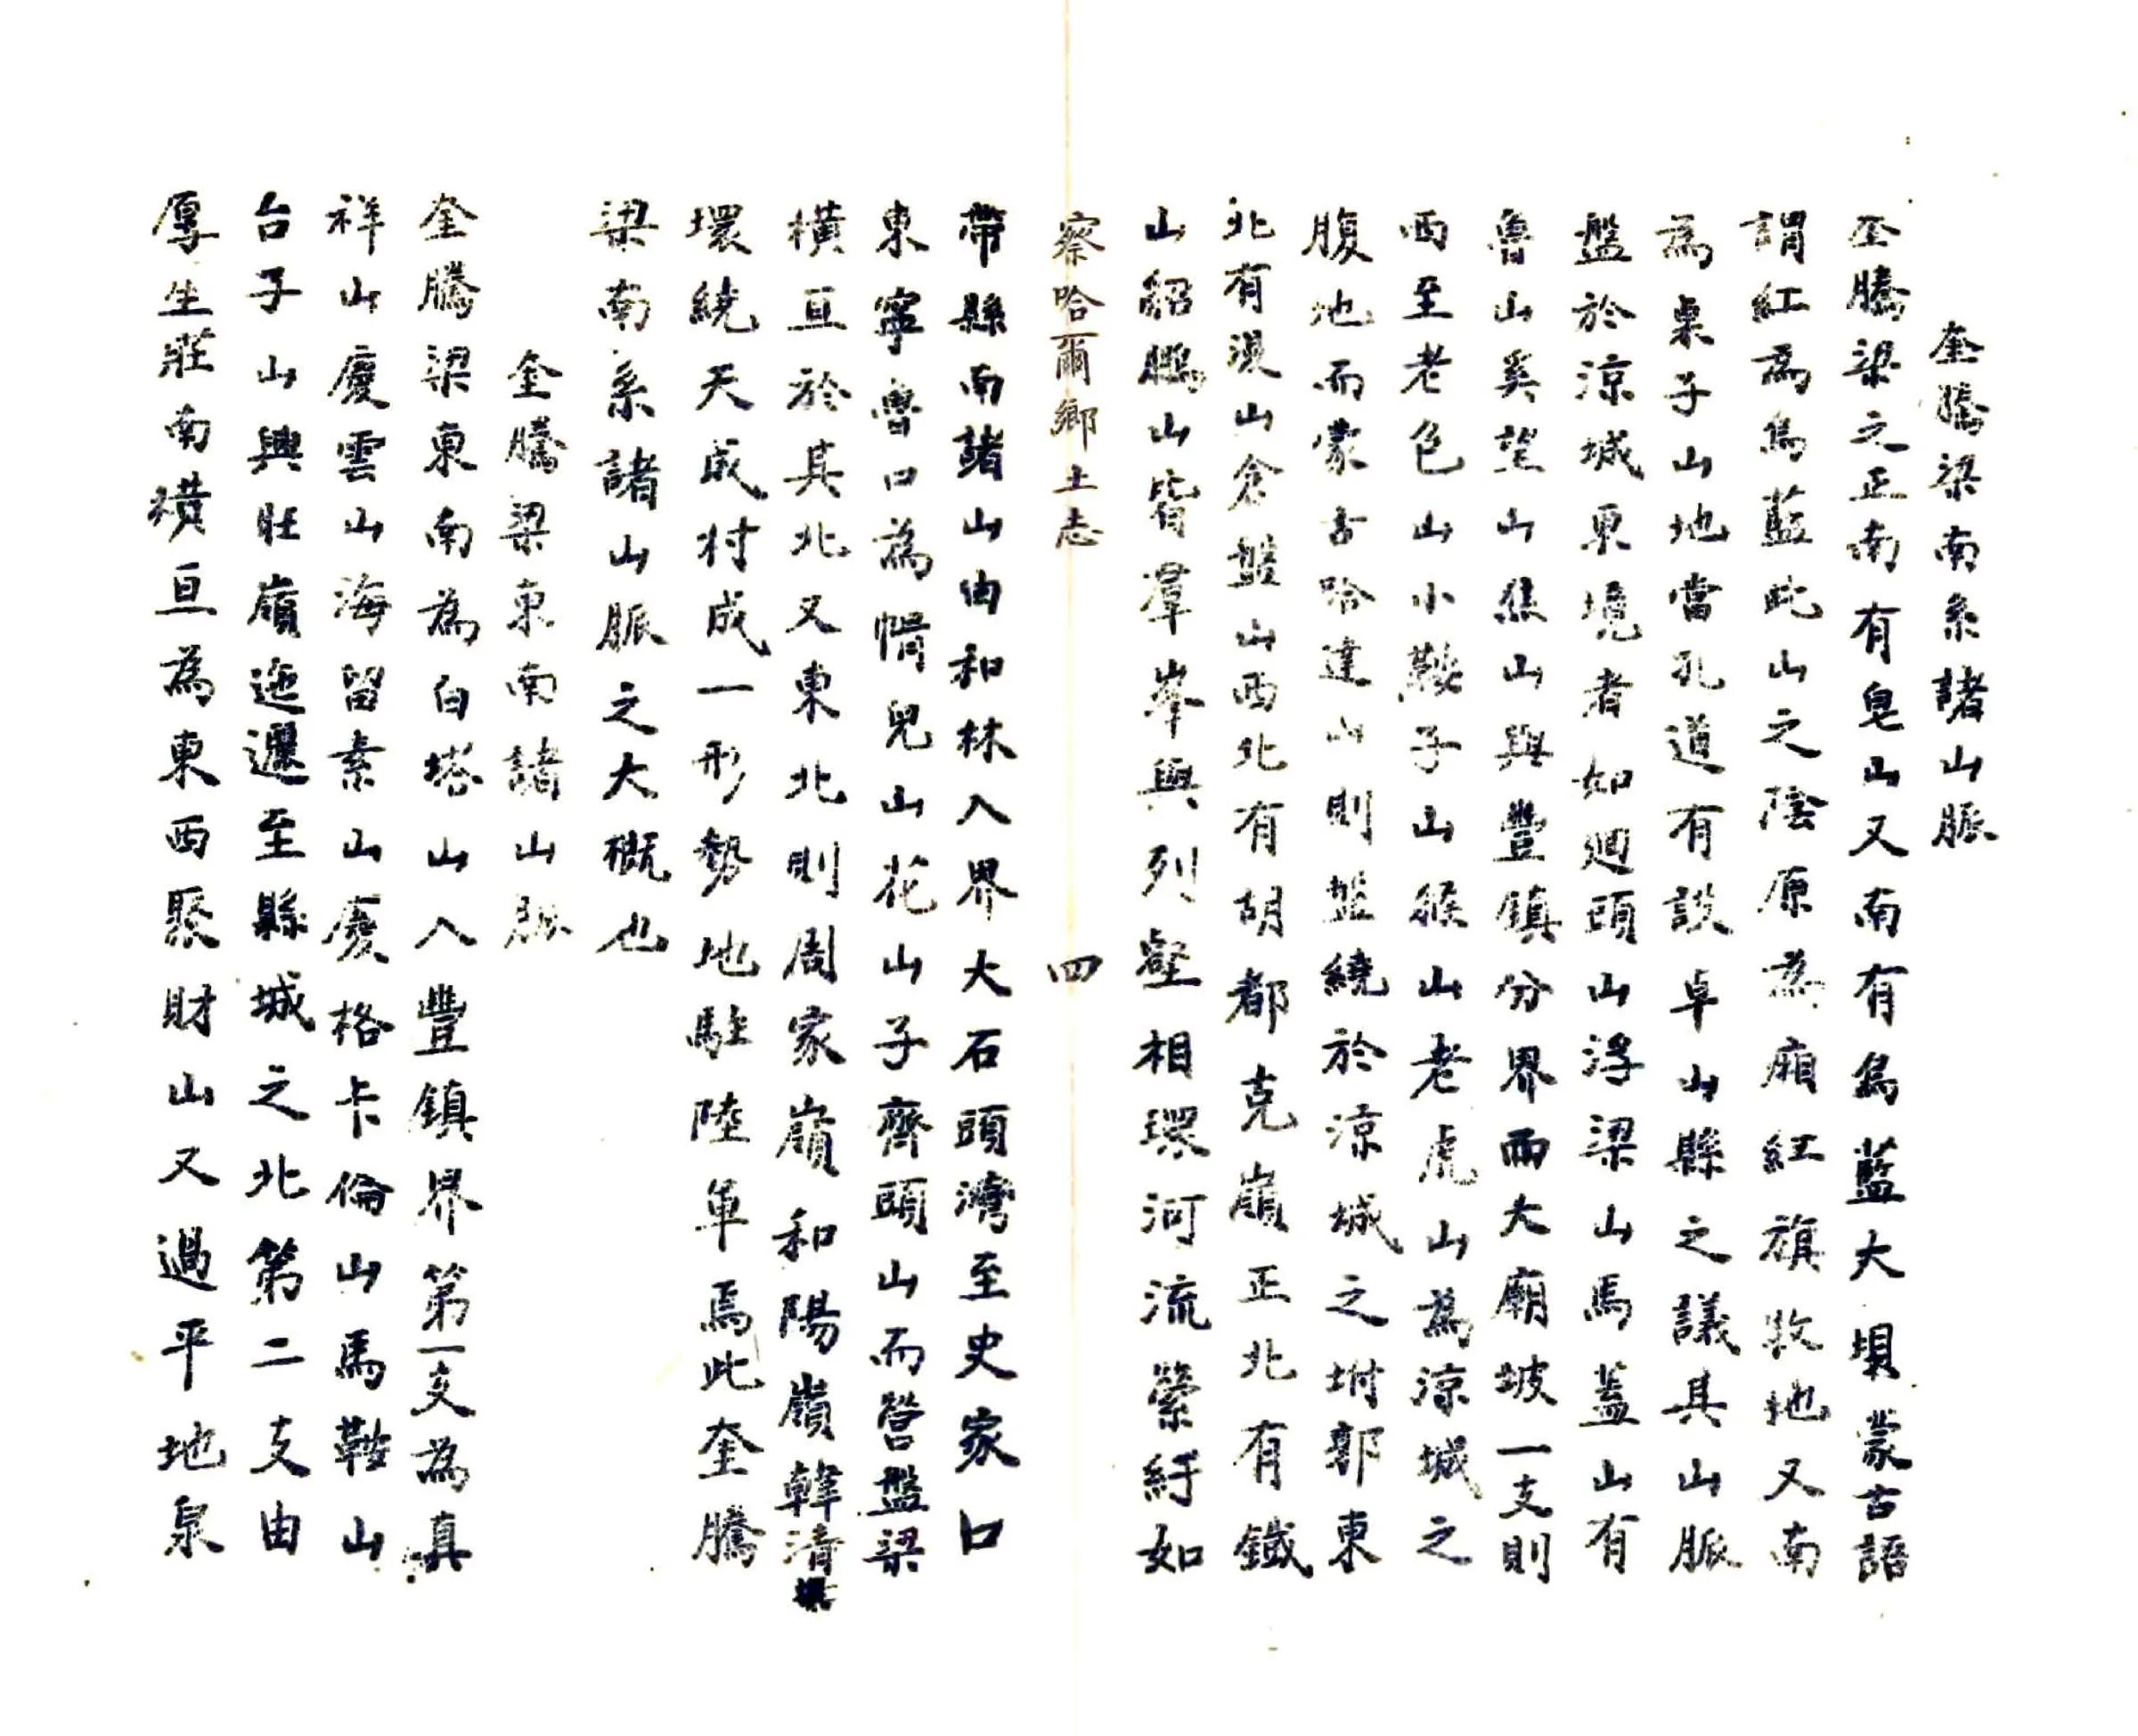 奎騰梁南系諸山脈
奎騰梁之正南有皂山又南有烏藍大垻蒙古語
謂紅為烏藍此山之陰原為廂紅旗牧地又南
為桌子山地當孔道有設卓山縣之議其山脈
盤於涼城東境者如迴頭山浮梁山馬蓋山有
魯山奚望山焦山與豐鎮分界而大廟坡一支則
西至老色山小鞍子山猴山老虎山為涼城之
腹地而蒙古哈達山則盤繞於涼城之坿郭東
北有漫山倉盤山西北有胡都克嶺正北有鐵
山貂鵬山皆羣峯與列壑相環河流縈紆如
察哈爾鄉土志 四
帶縣南諸山由和林入界大石頭灣至史家口
東寧魯口為帽兒山花山子齊頭山而營盤梁
橫亘於其北又東北則周家嶺和陽嶺韓清垻
環繞天成村成一形勢地駐陸軍焉此奎騰
梁南系諸山脈之大概也
奎騰梁東南諸山脈
奎騰梁東南為白塔山入豐鎮界第一支為真
祥山慶雲山海留素山慶格卡倫山馬鞍山
台子山興旺嶺迤邐至縣城之北第二支由
厚生莊南橫亘為東西聚財山又過平地泉